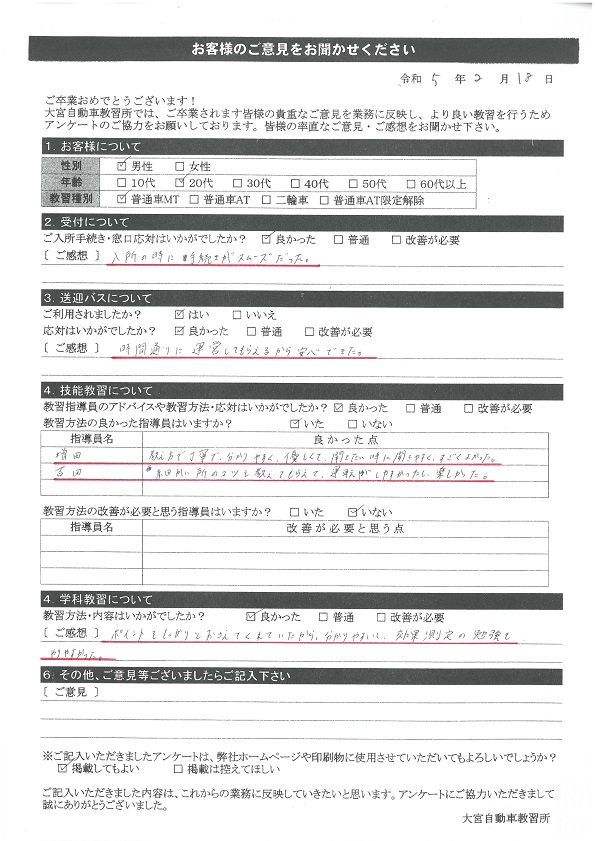 お客様のご意見をお聞かせください
令和 5 年 2 月 18 日
ご卒業おめでとうございます！
大宮自動車教習所では、ご卒業されます皆様の貴重なご意見を業務に反映し、より良い教習を行うため
アンケートのご協力をお願いしております。皆様の率直なご意見・ご感想をお聞かせ下さい。
1. お客様について
性別 ☑男性 □女性
年齢 □10代 ☑20代 □30代 □40代 □50代 □60代以上
教習種別 ☑普通車MT □普通車AT □二輪車 □普通車AT限定解除
2. 受付について
ご入所手続き・窓口応対はいかがでしたか？ ☑良かった □普通 □改善が必要
［ ご感想 ］ 入所の時に手続きがスムーズだった。
3. 送迎バスについて
ご利用されましたか？ ☑はい □いいえ
応対はいかがでしたか？ ☑良かった □普通 □改善が必要
［ ご感想 ］ 時間通りに運営してもらえるから安心できた。
4. 技能教習について
教習指導員のアドバイスや教習方法・応対はいかがでしたか？ ☑良かった □普通 □改善が必要
教習方法の良かった指導員はいますか？ ☑いた □いない
指導員名 良かった点
増田 教え方で丁寧で、分かりやすく、優しくて、聞きたい時に聞きやすく、すごくよかった。
吉田 細かい所のコツも教えてもらえて、運転がしやすかったし、楽しかった。
教習方法の改善が必要と思う指導員はいますか？ □いた ☑いない
指導員名 改善が必要と思う点
4. 学科教習について
教習方法・内容はいかがでしたか？ ☑良かった □普通 □改善が必要
［ ご感想 ］ ポイントをしっかりとおさえてくれていたから、分かりやすいし、効果測定の勉強も
やりやすかった。
6. その他、ご意見等ございましたらご記入下さい
［ ご意見 ］
※ご記入いただきましたアンケートは、弊社ホームページや印刷物に使用させていただいてもよろしいでしょうか？
☑掲載してもよい □掲載は控えてほしい
ご記入いただきました内容は、これからの業務に反映していきたいと思います。アンケートにご協力いただきまして
誠にありがとうございました。
大宮自動車教習所